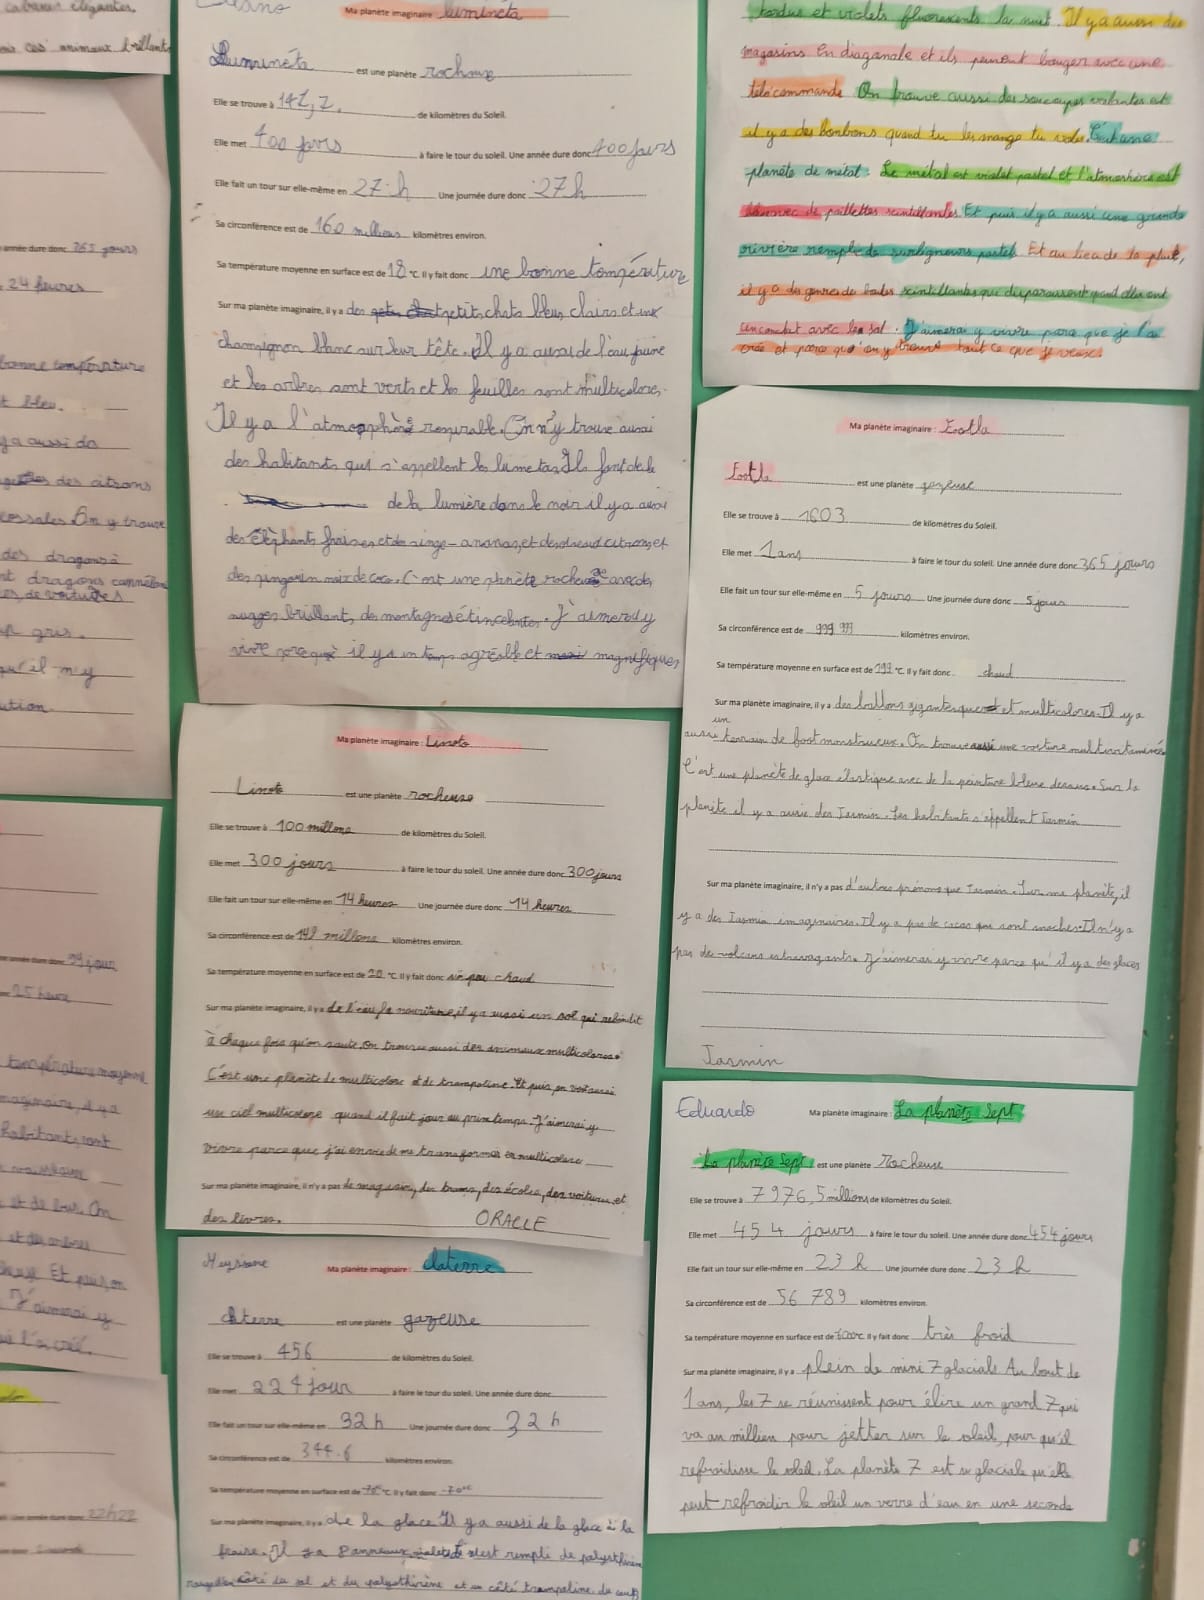 cabanes élégantes.
ces animaux brillants
année dure donc 365 jours
24 heures
bonne température
t bleu.
y a aussi do
des citrons
cossales. On y trouve
des dragons à
nt dragons
es, de voitures
gris.
qu'el m'y
ution.
année dure donc 94 jour
25 heure
température moyenne
maginaire, il y a
habitants sont
et de bois. On
et des arbres
Et puis on
J'aimerai y
l'a créé.
22h22
Ma planète imaginaire : Lumineta
Lumineta est une planète rocheuse
Elle se trouve à 142,2. de kilomètres du Soleil.
Elle met 400 jours à faire le tour du soleil. Une année dure donc 400 jours
Elle fait un tour sur elle-même en 27 h Une journée dure donc 27h
Sa circonférence est de 160 millions kilomètres environ.
Sa température moyenne en surface est de 18 °C. Il y fait donc une bonne température
Sur ma planète imaginaire, il y a des petits chats bleus clairs et un
champignon blanc sur leur tête. Il y a aussi de l'eau jaune
et les arbres sont verts et les feuilles sont multicolore.
Il y a l'atmosphère respirable. On n'y trouve aussi
des habitants qui s'appellent les lumetas. Ils font de la
de la lumière dans le noir il y a aussi
des éléphants fraises et des singe-ananas, et des oiseaux citrons, et
des pingouin noix de coco. C'est une planète rocheuse avec des
nuages brillant, des montagnes étincelantes. J'aimerai y
vivre parce que il y a un temps agréable et magnifiques
Ma planète imaginaire : Linoto
Linoto est une planète rocheuse
Elle se trouve à 100 millons de kilomètres du Soleil.
Elle met 300 jours à faire le tour du soleil. Une année dure donc 300 jours
Elle fait un tour sur elle-même en 14 heures Une journée dure donc 14 heures
Sa circonférence est de 142 millons kilomètres environ.
Sa température moyenne en surface est de 20 °C. Il y fait donc un peu chaud
Sur ma planète imaginaire, il y a de l'eau, la nouriture, il y a aussi un sol qui rebondit
à chaque fois qu'on saute. On trouve aussi des animeaux multicolores.
C'est une planète de multicolore et de trampoline. Et puis, on voit aussi
un ciel multicolore quand il fait jour au printemps. J'aimerai y
vivre parce que j'ai envie de me transformer en multicolore
Sur ma planète imaginaire, il n'y a pas de magasin, des trams, des écoles, des voitures et
des livres. ORACLE
Ma planète imaginaire : claterre
claterre est une planète gazeuse
Elle se trouve à 456 de kilomètres du Soleil.
Elle met 224 jour à faire le tour du soleil. Une année dure donc
Elle fait un tour sur elle-même en 32 h Une journée dure donc 32 h
Sa circonférence est de 344.6 kilomètres environ.
Sa température moyenne en surface est de -70° °C. Il y fait donc -70°C
Sur ma planète imaginaire, il y a de la glace Il y a aussi de la glace à la
fraise. Il y a rempli de polysthirène
côté du sol et du polysthirène et un côté trampoline.
tordus et violets fluorescents la nuit. Il y a aussi des
magasins en diagonale et ils peuvent bouger avec une
télécommande. On trouve aussi des soucoupes volantes et
il y a des bonbons quand tu les mange tu voles. C'est une
planète de métal. Le métal est violet pastel et l'atmosphère est
avec de paillettes scintillantes. Et puis il y a aussi une grande
rivière remplie de surligneurs pastels. Et au lieu de la pluie,
il y a des genres de boules scintillantes qui disparaissent quand elles ont
un contact avec le sol. J'aimerai y vivre parce que je l'ai
créé et parce qu'on y trouve tout ce que je veux.
Ma planète imaginaire : Footla
Footla est une planète gazeuse
Elle se trouve à 1603 de kilomètres du Soleil.
Elle met 1 ans à faire le tour du soleil. Une année dure donc 365 jours
Elle fait un tour sur elle-même en 5 jours Une journée dure donc 5 jours
Sa circonférence est de 999 999 kilomètres environ.
Sa température moyenne en surface est de 199 °C. Il y fait donc chaud
Sur ma planète imaginaire, il y a des ballons gigantesque et multicolores. Il y a
un
aussi terrain de foot monstrueux. On trouve aussi une voiture multivitaminée
C'est une planète de glace élastique avec de la peinture bleue dessus. Sur la
planète il y a aussi des Jasmin. Les habitants s'appellent Jasmin
Sur ma planète imaginaire, il n'y a pas d'autres prénoms que Jasmin. Sur ma planète, il
y a des Jasmin imaginaires. Il y a pas de cacas qui sont moches. Il n'y a
pas de volcans extravagants. J'aimerais y vivre parce qu'il y a des glaces
Jasmin
Eduardo Ma planète imaginaire : La planète Sept
La planète Sept est une planète Rocheuse
Elle se trouve à 7976,5 millions de kilomètres du Soleil.
Elle met 454 jours à faire le tour du soleil. Une année dure donc 454 jours
Elle fait un tour sur elle-même en 23 h Une journée dure donc 23 h
Sa circonférence est de 56 789 kilomètres environ.
Sa température moyenne en surface est de Il y fait donc très froid
Sur ma planète imaginaire, il y a plein de mini 7 glacials Au bout de
1 ans, les 7 se réunissent pour élire un grand 7 qui
va au millien pour jetter sur le soleil, pour qu'il
refroidisse le soleil. La planète 7 est si glaciale qu'elle
peut refroidir le soleil un verre d'eau en une seconde